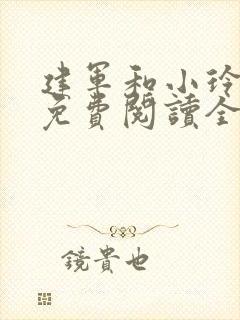 建军和小玲
免費閱讀全
鏡貴也